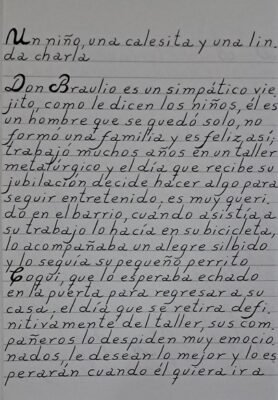 Un niño, una calesita y una lin_
da charla
Don Braulio es un simpático vie_
jito, como le dicen los niños, él es
un hombre que se quedó solo, no
formó una familia y es feliz así,
trabajó muchos años en un taller
metalúrgico y el día que recibe su
jubilación decide hacer algo para
seguir entretenido, es muy queri_
do en el barrio, cuando asistía a
su trabajo lo hacía en su bicicleta,
lo acompañaba un alegre silbido
y lo seguía su pequeño perrito
Coqui, que lo esperaba echado
en la puerta para regresar a su
casa, el día que se retira defi_
nitivamente del taller, sus com_
pañeros lo despiden muy emocio_
nados, le desean lo mejor y lo es_
perarán cuando él quiera ir a